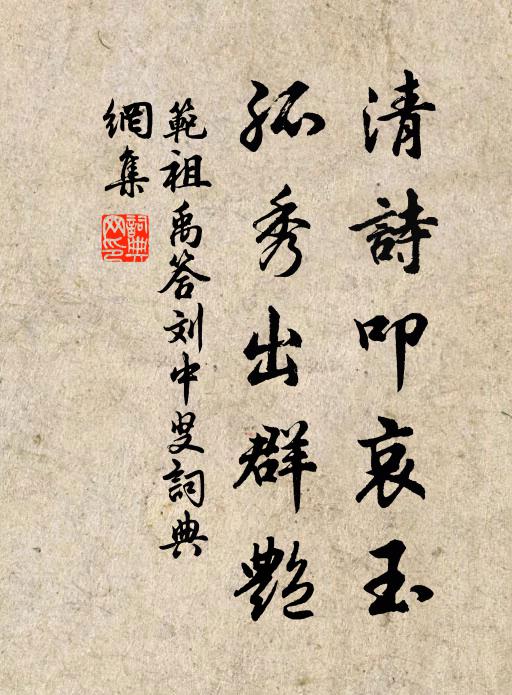 清詩叩哀玉
孤秀出群艷
範祖禹答刘中叟詞典
網集
詞典网印